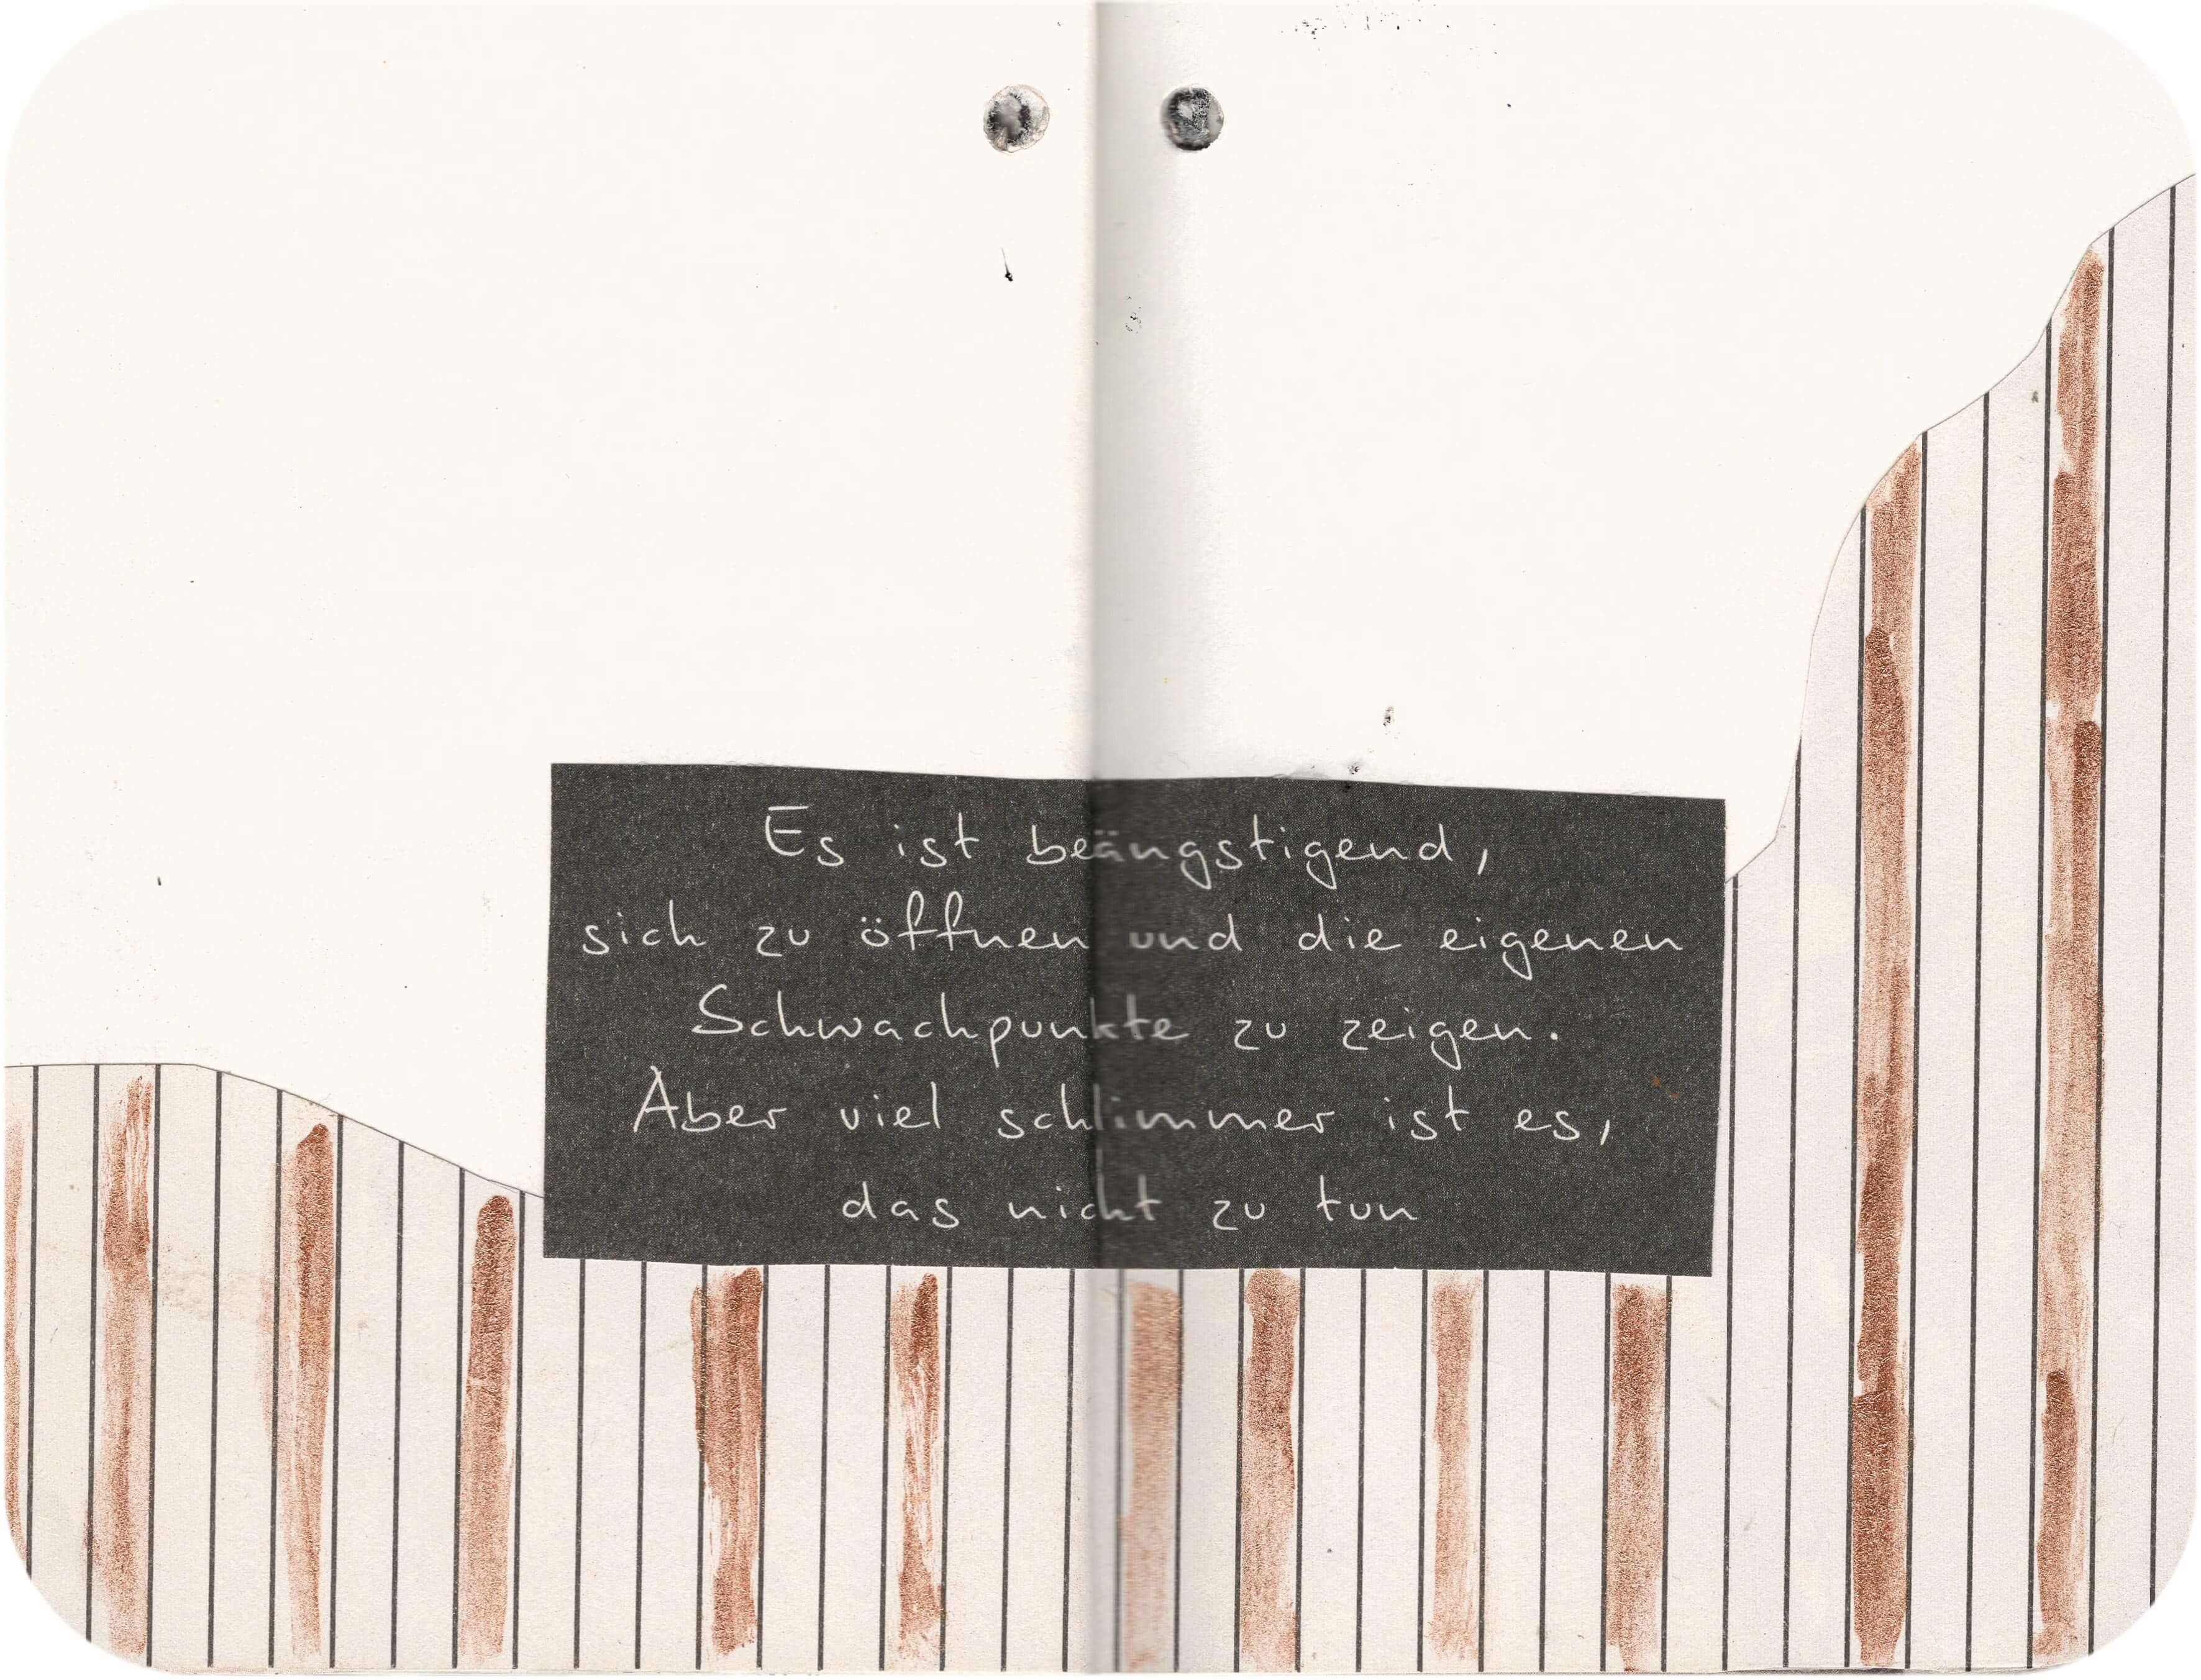 Es ist beängstigend,
sich zu öffnen und die eigenen
Schwachpunkte zu zeigen.
Aber viel schlimmer ist es,
das nicht zu tun